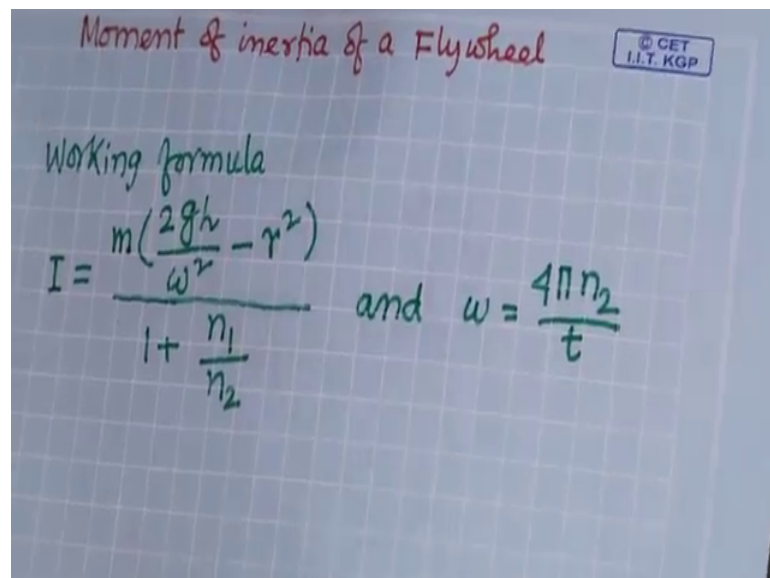 Moment of inertia of a Flywheel
© CET
I.I.T. KGP
Working formula
I = m(2gh/ω² - r²) / (1 + n₁/n₂) and ω = 4πn₂/t